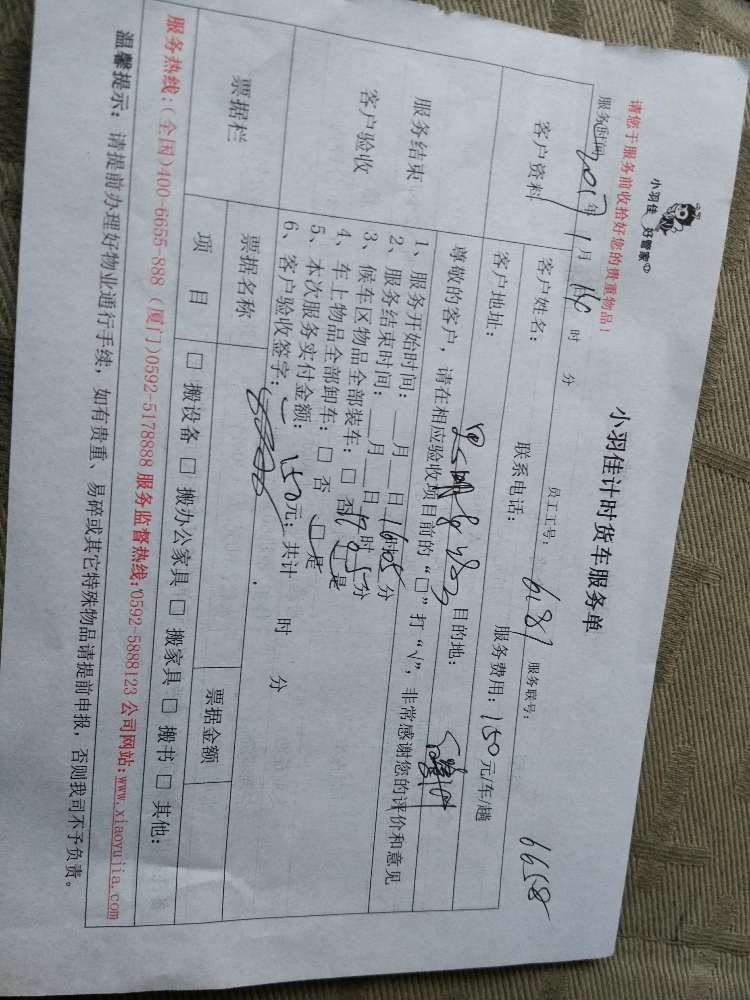 小羽佳 好管家
小羽佳计时货车服务单
请您于服务前收拾好您的贵重物品！
员工工号： 6187 服务联号： 6658
服务时间 2017年1月 日 时 分
客户资料
客户姓名： 联系电话： 服务费用：150元/车/趟
客户地址： 目的地：
服务结束
客户验收
尊敬的客户，请在相应验收项目前的“□”打“√”，非常感谢您的评价和意见
1、服务开始时间：__月__日 时 分
2、服务结束时间：__月__日 时 分
3、候车区物品全部装车：□ 否 □ 是
4、车上物品全部卸车：□ 否 □ 是
5、本次服务实付金额： 150元；共计 时 分
6、客户验收签字：
票据栏
票据名称
票据金额
项 目
□ 搬设备 □ 搬办公家具 □ 搬家具 □ 搬书 □ 其他：
服务热线：(全国)400-6655-888 (厦门)0592-5178888 服务监督热线：0592-5888123 公司网站：www.xiaoyujia.com
温馨提示：请提前办理好物业通行手续，如有贵重、易碎或其它特殊物品请提前申报，否则我司不予负责。